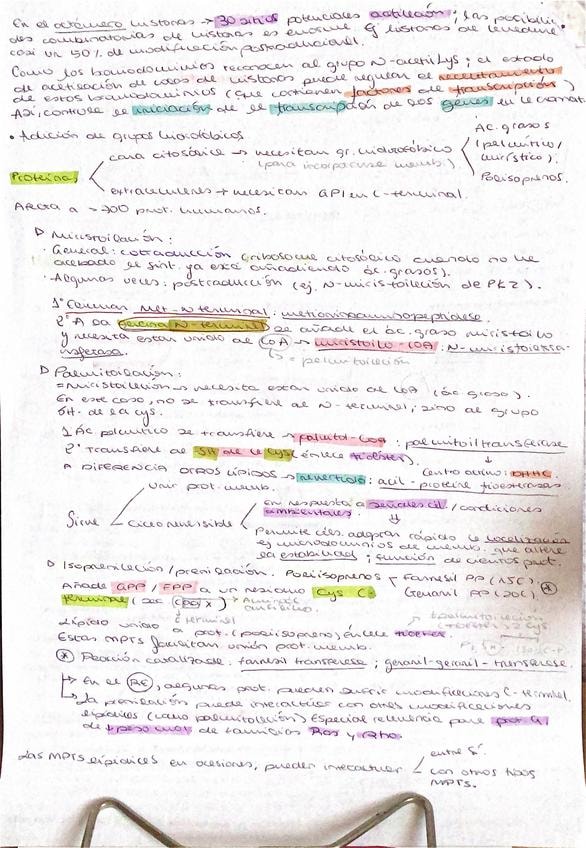 En el octámero histonas → 30 sitios potenciales acetilación; las posibili-
des combinatorias de histonas es enorme. Ej histonas de levadura
casi un 50% de modificación postraduccional.
Como los bromodominios reconocen al grupo N-acetil Lys; el estado
de acetilación de colas de histonas puede regular el reclutamiento
de estos bromodominios (que contienen factores de transcripción)
Así, controla el iniciación de el transcripción de los genes en la cromat.
• Adición de grupos hidrofóbicos
Proteínas
cara citosólica → necesitan gr. hidrofóbico
(para incorporarse memb.)
Ac. grasos
(palmítico/
mirístico).
Poliisoprenos.
extracelulares → necesitan GPI en C-terminal.
Afecta a ~700 prot. humanas.
▷ Miristoilación:
· General: cotraducción (ribosoma citosólico cuando no ha
acabado el sint. ya está añadiendo ác. grasos).
· Algunas veces: postraducción (ej. N-miristoilación de PK2).
1º Eliminan Met-N terminal: metioninaminopeptidasa.
2º A la glicina N-terminal se añade el ác. graso miristoilo
y necesita estar unido al CoA → miristoilo-CoA: N-miristoiltrans-
ferasa.
= palmitoilación
▷ Palmitoilación:
= miristoilación → necesita estar unido al CoA (ác. graso).
En este caso, no se transfiere al N-terminal, sino al grupo
SH- de la cys.
1 Ác. palmítico se transfiere → palmitoil-CoA: palmitoiltransferasa
2º Transfiere al SH de la cys (enlace tioéster).
centro activo: DHHC.
A DIFERENCIA OTROS LÍPIDOS → reversible: acil-proteína tioesterasas.
Sirve
unir prot. memb.
Ciclo reversible
en respuesta a señales cel / condiciones
ambientales.
Permite céls. adoptar rápido la localización
ej microdominios de memb. que altere
la estabilidad; función de ciertas prot.
▷ Isoprenilación/prenilación. Poliisoprenos
Farnesil PP (15C).
Geranil PP (20C). *
Añade GPP / FPP a un residuo Cys C-
terminal (sec CaaX) → Aminoác
alifático.
C terminal
Lípido unido a prot. (poliisopreno) enlace tioéter.
Estas MPTS facilitan unión prot. memb.
* Reacción catalizada: farnesil transferasa; geranil-geranil-transferasa.
→ En el RE, algunas prot. pueden sufrir modificaciones C-terminal.
→ La prenilación puede interactuar con otras modificaciones
lipídicas (como palmitoilación) Especial relevancia para prot G
de ↓ peso mol de familias Ras y Rho.
Las MPTS lipídicas en ocasiones, pueden interactuar
entre sí.
con otros tipos
MPTS.